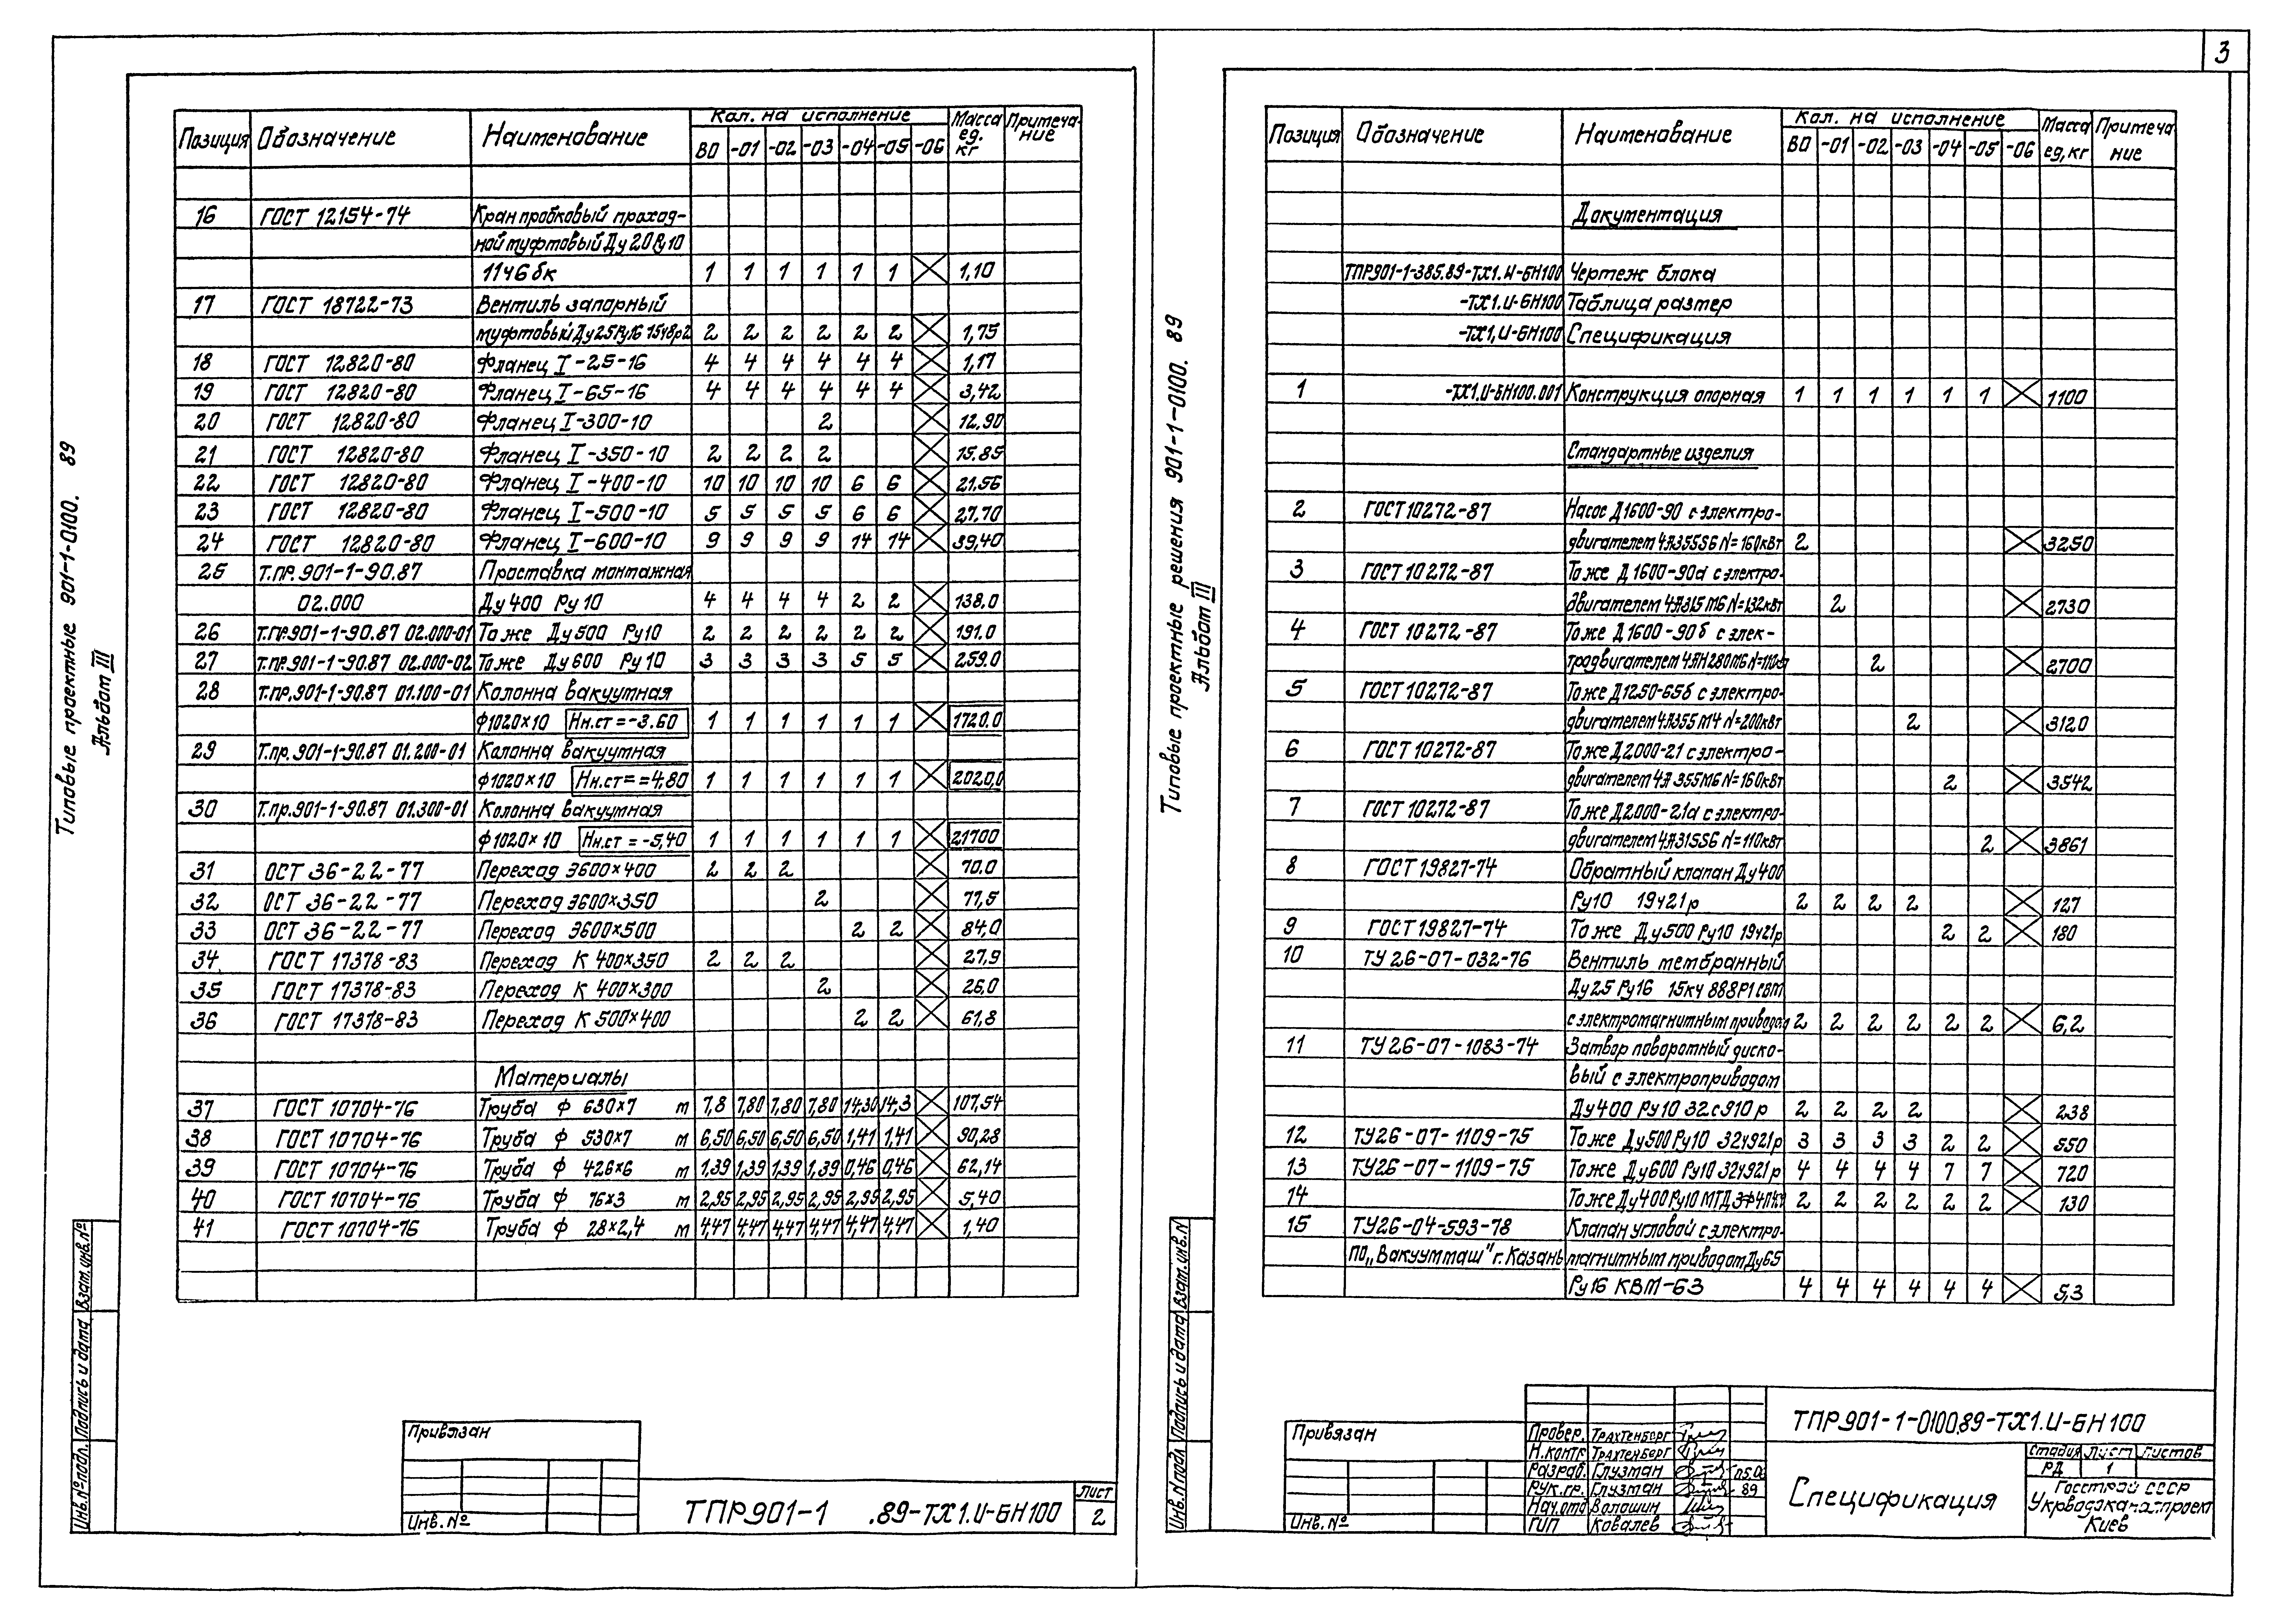 3
Типовые проектные 901-1-0100. 89
Альбом III
Позиция Обозначение Наименование Кол. на исполнение Масса ед. кг Примечание
ВО -01 -02 -03 -04 -05 -06
16 ГОСТ 12154-74 Кран пробковый проход-
ной муфтовый Ду20 Ру10
11ч6бк 1 1 1 1 1 1 1,10
17 ГОСТ 18722-73 Вентиль запорный
муфтовый Ду25 Ру16 15ч8р2 2 2 2 2 2 2 1,75
18 ГОСТ 12820-80 Фланец I-25-16 4 4 4 4 4 4 1,17
19 ГОСТ 12820-80 Фланец I-65-16 4 4 4 4 4 4 3,42
20 ГОСТ 12820-80 Фланец I-300-10 2 12,90
21 ГОСТ 12820-80 Фланец I-350-10 2 2 2 2 15.85
22 ГОСТ 12820-80 Фланец I-400-10 10 10 10 10 6 6 21,56
23 ГОСТ 12820-80 Фланец I-500-10 5 5 5 5 6 6 27,70
24 ГОСТ 12820-80 Фланец I-600-10 9 9 9 9 14 14 39,40
25 Т.ПР.901-1-90.87 Проставка монтажная
02.000 Ду 400 Ру 10 4 4 4 4 2 2 138,0
26 Т.ПР.901-1-90.87 02.000-01 То же Ду500 Ру10 2 2 2 2 2 2 191,0
27 Т.ПР.901-1-90.87 02.000-02 То же Ду600 Ру10 3 3 3 3 5 5 259.0
28 Т.ПР.901-1-90.87 01.100-01 Колонна вакуумная
ф1020×10 Нн.ст=-3.60 1 1 1 1 1 1 1720,0
29 Т.пр.901-1-90.87 01.200-01 Колонна вакуумная
ф1020×10 Нн.ст==4,80 1 1 1 1 1 1 2020,0
30 Т.пр.901-1-90.87 01.300-01 Колонна вакуумная
ф1020×10 Нн.ст=-5,40 1 1 1 1 1 1 21700
31 ОСТ 36-22-77 Переход Э600×400 2 2 2 70.0
32 ОСТ 36-22-77 Переход Э600×350 2 77,5
33 ОСТ 36-22-77 Переход Э600×500 2 2 84,0
34 ГОСТ 17378-83 Переход К 400×350 2 2 2 27,9
35 ГОСТ 17378-83 Переход К 400×300 2 26,0
36 ГОСТ 17378-83 Переход К 500×400 2 2 61,8
Материалы
37 ГОСТ 10704-76 Труба ф 630×7 м 7,8 7,80 7,80 7,80 14,30 14,3 107,54
38 ГОСТ 10704-76 Труба ф 530×7 м 6,50 6,50 6,50 6,50 1,41 1,41 90,28
39 ГОСТ 10704-76 Труба ф 426×6 м 1,39 1,39 1,39 1,39 0,46 0,46 62,14
40 ГОСТ 10704-76 Труба ф 76×3 м 2,95 2,95 2,95 2,95 2,95 2,95 5,40
41 ГОСТ 10704-76 Труба ф 28×2,4 м 4,47 4,47 4,47 4,47 4,47 4,47 1,40
Инв.№подл. Подпись и дата Взам.инв.№
Привязан
Инв.№
ТПР901-1 .89-ТХ1.И-БН100
Лист
2
Типовые проектные решения 901-1-0100. 89
Альбом III
Позиция Обозначение Наименование Кол. на исполнение Масса ед,кг Примечание
ВО -01 -02 -03 -04 -05 -06
Документация
ТПР901-1-385.89-ТХ1.И-БН100 Чертеж блока
-ТХ1.И-БН100 Таблица размер
-ТХ1,И-БН100 Спецификация
1 -ТХ1.И-БН100.001 Конструкция опорная 1 1 1 1 1 1 1100
Стандартные изделия
2 ГОСТ10272-87 Насос Д1600-90 с электро-
двигателем 4А355S6 N=160кВт 2 3250
3 ГОСТ10272-87 То же Д1600-90а с электро-
двигателем 4А315М6 N=132кВт 2 2730
4 ГОСТ 10272-87 То же Д1600-90б с элек-
тродвигателем 4АН280М6 N=110кВт 2 2700
5 ГОСТ10272-87 То же Д1250-65б с электро-
двигателем 4А355М4 N=200кВт 2 3120
6 ГОСТ10272-87 То же Д2000-21 с электро-
двигателем 4А355М6 N=160кВт 2 3542
7 ГОСТ10272-87 То же Д2000-21а с электро-
двигателем 4А315S6 N=110кВт 2 3861
8 ГОСТ 19827-74 Обратный клапан Ду400
Ру10 19ч21р 2 2 2 2 127
9 ГОСТ19827-74 То же Ду500 Ру10 19ч21р 2 2 180
10 ТУ26-07-032-76 Вентиль мембранный
Ду25 Ру16 15кч 888Р1 СВМ
с электромагнитным приводом 2 2 2 2 2 2 6,2
11 ТУ26-07-1083-74 Затвор поворотный диско-
вый с электроприводом
Ду400 Ру10 32с910р 2 2 2 2 238
12 ТУ26-07-1109-75 То же Ду500 Ру10 32ч921р 3 3 3 3 2 2 550
13 ТУ26-07-1109-75 То же Ду600 Ру10 32ч921р 4 4 4 4 7 7 720
14 То же Ду400 Ру10 2 2 2 2 2 2 130
15 ТУ26-04-593-78 Клапан угловой с электро-
ПО„Вакууммаш" г.Казань магнитным приводом Ду65
Ру16 КВМ-63 4 4 4 4 4 4 5,3
Инв.№подл Подпись и дата Взам.инв.№
Привязан
Инв.№
Провер. Трахтенберг
Н.контр Трахтенберг
Разраб. Глузман
Рук.гр. Глузман 89
Нач.отд Волошин
ГИП Ковалев
ТПР901-1-0100.89-ТХ1.И-БН100
Спецификация
Стадия Лист Листов
РД 1
Госстрой СССР
Укрводоканалпроект
Киев